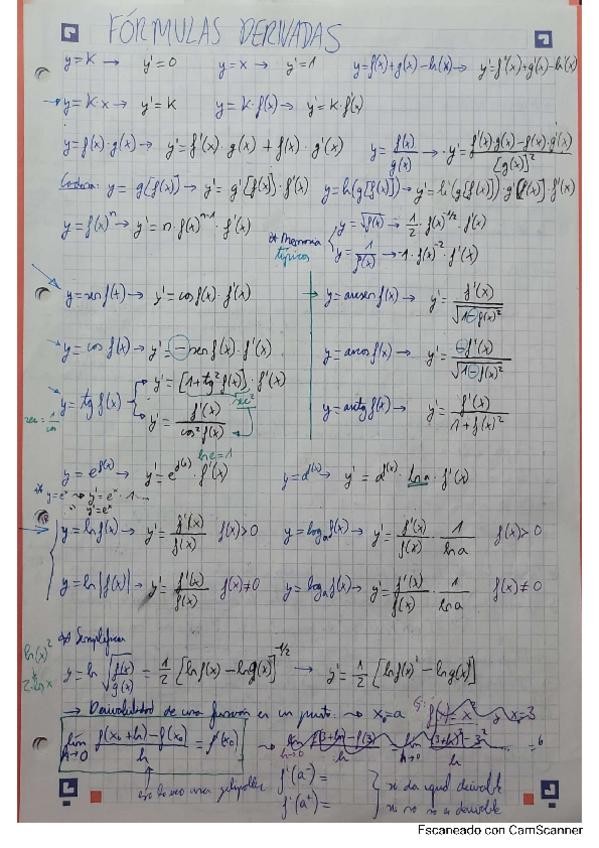 FÓRMULAS DERIVADAS
y=k → y'=0 y=x → y'=1 y=f(x)+g(x)-h(x) → y'=f'(x)+g'(x)-h'(x)
→ y=k·x → y'=k y=k·f(x) → y'=k·f'(x)
y=f(x)·g(x) → y'=f'(x)·g(x)+f(x)·g'(x) y=f(x)/g(x) → y'=f'(x)·g(x)-f(x)·g'(x)/[g(x)]²
Cadena: y=g[f(x)] → y'=g'[f(x)]·f'(x) y=h(g[f(x)]) → y'=h'(g[f(x)])·g'[f(x)]·f'(x)
y=f(x)ⁿ → y'=n·f(x)ⁿ⁻¹·f'(x)
* Memoria típicos
y=√f(x) → 1/2·f(x)^-1/2·f'(x)
y=1/f(x) → -1·f(x)⁻²·f'(x)
y=sen f(x) → y'=cos f(x)·f'(x) → y=arcsen f(x) → y'=f'(x)/√1-f(x)²
y=cos f(x) → y'=-sen f(x)·f'(x) y=arcos f(x) → y'=-f'(x)/√1-f(x)²
y=tg f(x) → y'=[1+tg² f(x)]·f'(x) sec²
y'=f'(x)/cos² f(x) y=arctg f(x) → y'=f'(x)/1+f(x)²
sec=1/cos
ln e=1
y=e^f(x) → y'=e^f(x)·f'(x) y=a^f(x) → y'=a^f(x)·ln a·f'(x)
* y=eˣ → y'=eˣ·1...
y'=eˣ
y=ln f(x) → y'=f'(x)/f(x) f(x)>0 y=logₐ f(x) → y'=f'(x)/f(x)·1/ln a f(x)>0
y=ln|f(x)| → y'=f'(x)/f(x) f(x)≠0 y=logₐ f(x) → y'=f'(x)/f(x)·1/ln a f(x)≠0
* Simplificar
ln(x)²
2·ln x
y=ln √f(x)/g(x) = 1/2 [ln f(x)-ln g(x)]^-1/2 → y'=1/2 [ln f(x)'-ln g(x)']
→ Derivabilidad de una función en un punto. → x₀=a f(x)=x² y x₀=3
lim h→0 f(x₀+h)-f(x₀)/h = f'(x₀) → lim h→0 f(3+h)-f(3)/h = lim h→0 (3+h)²-3²/h =6
f'(a⁻)=
f'(a⁺)=
si da igual derivable
si no no es derivable
Escaneado con CamScanner